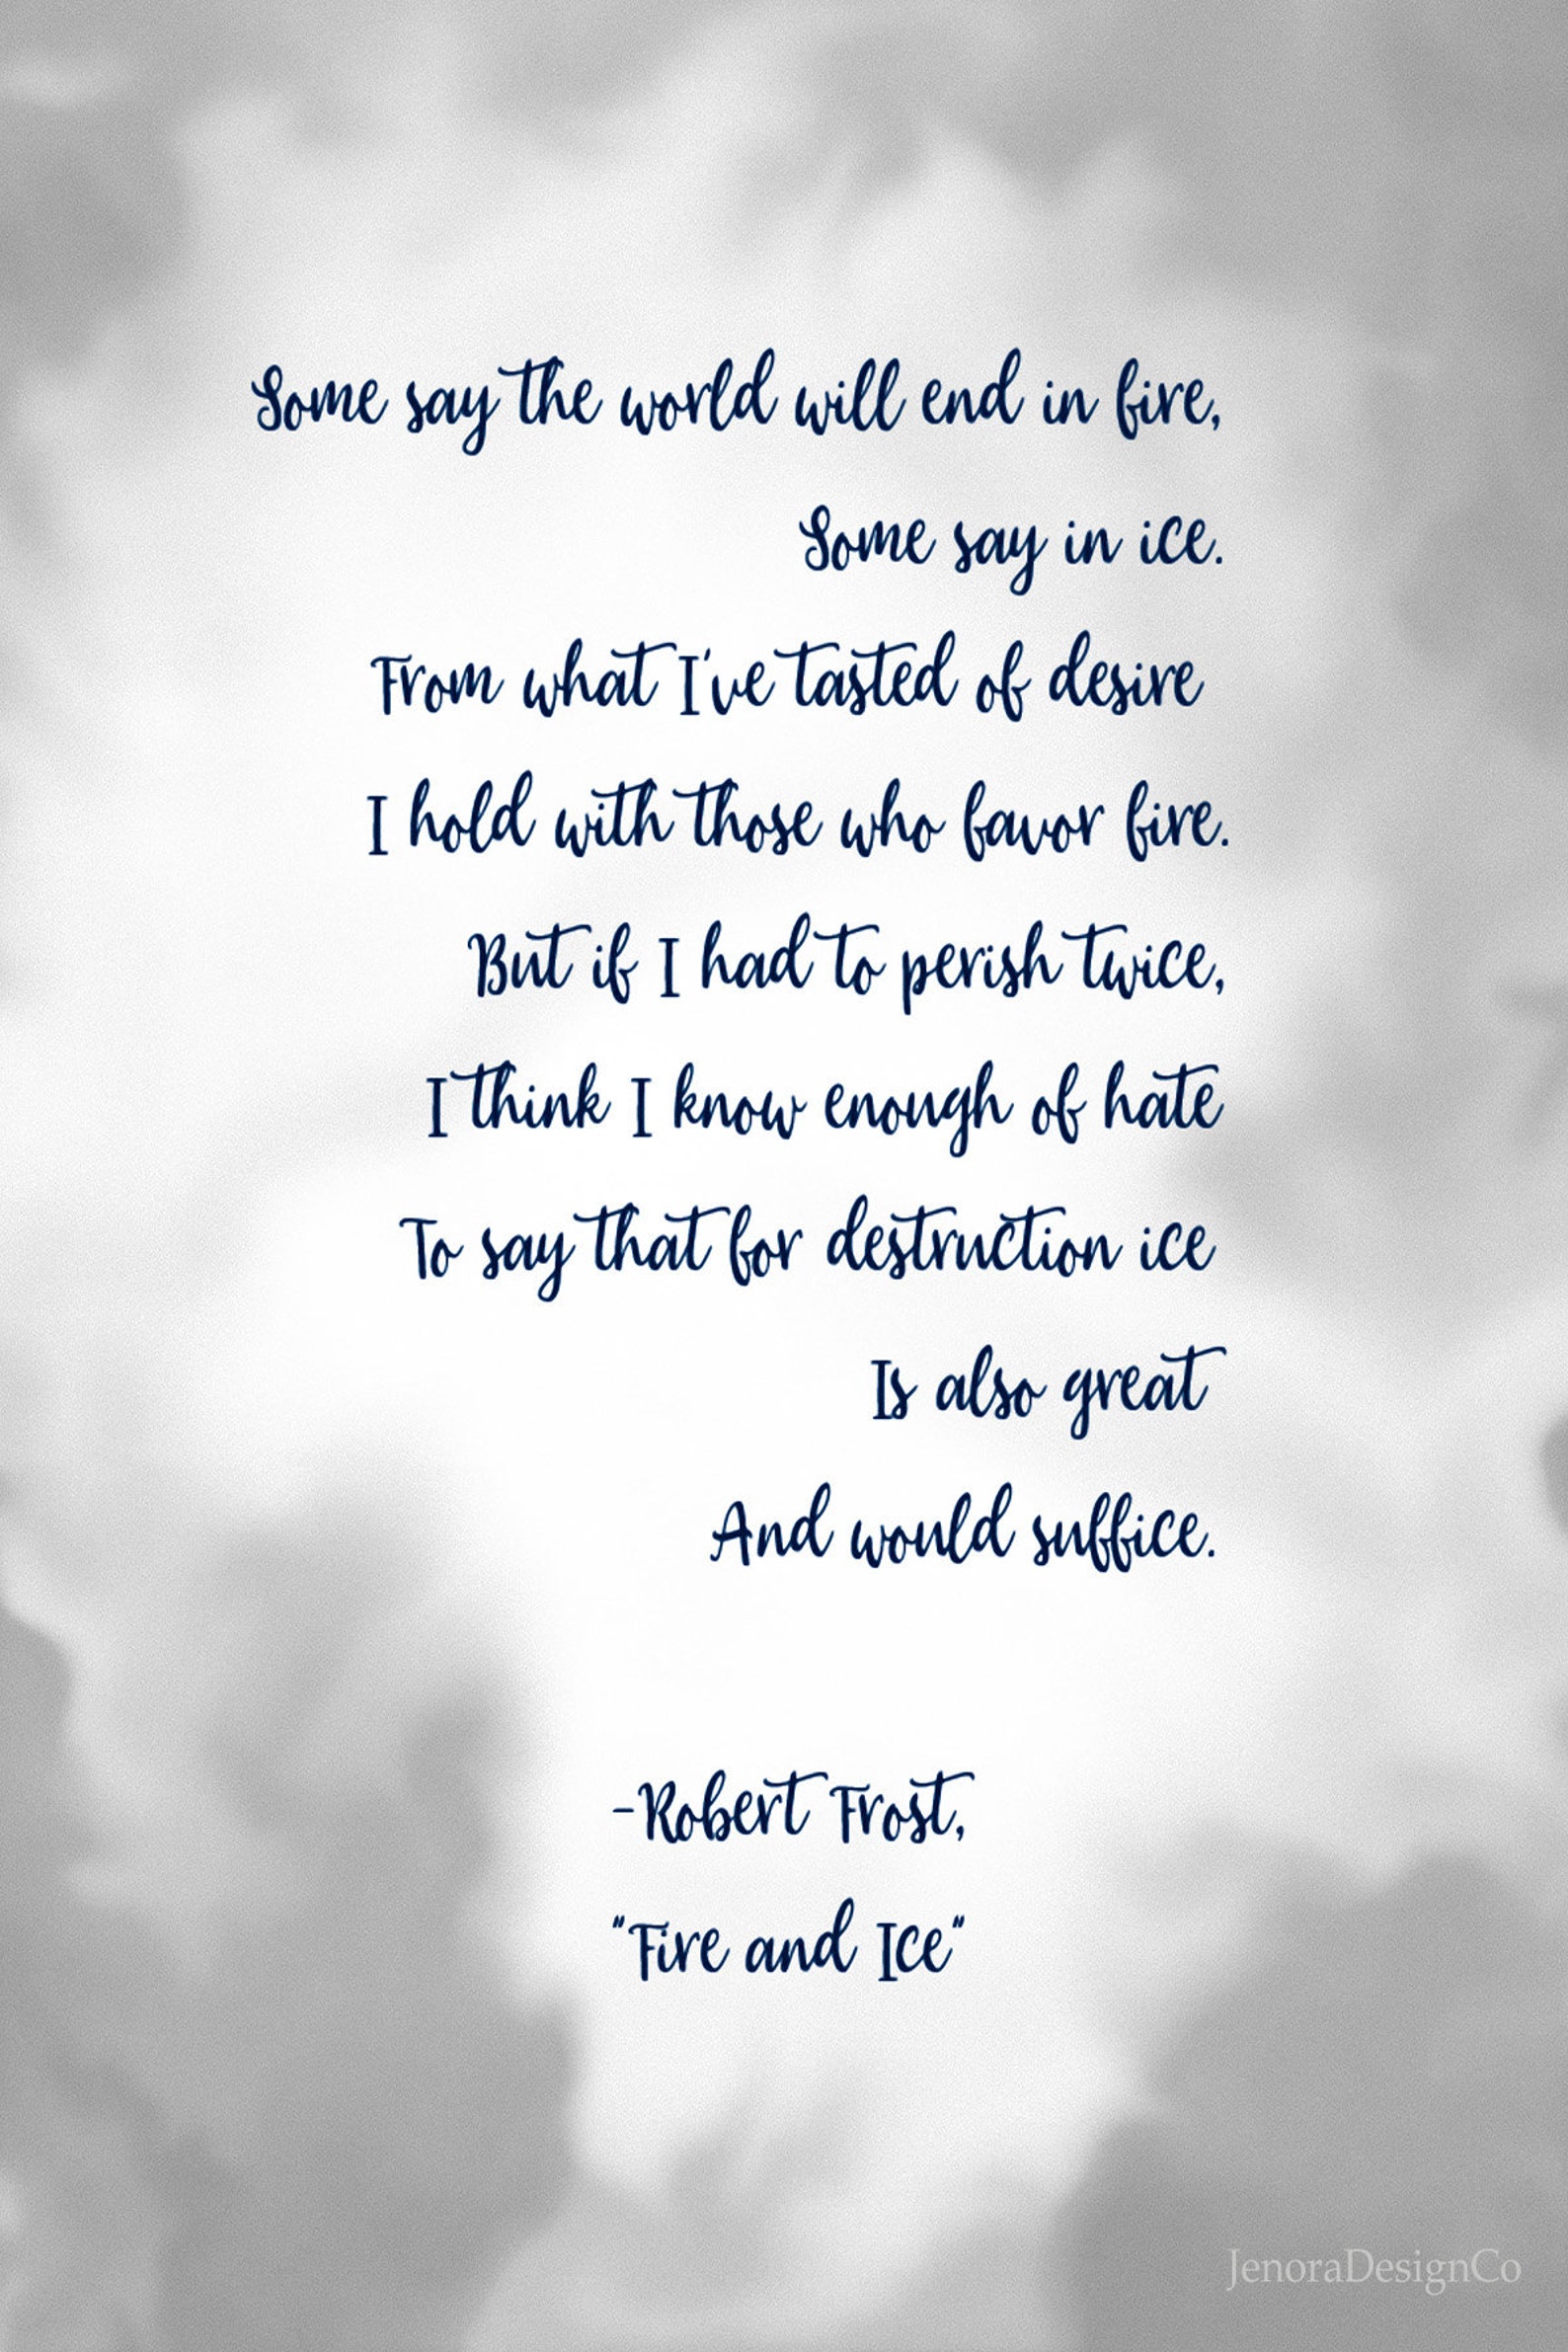 Some say the world will end in fire,
Some say in ice.
From what I've tasted of desire
I hold with those who favor fire.
But if I had to perish twice,
I think I know enough of hate
To say that for destruction ice
Is also great
And would suffice.
-Robert Frost,
"Fire and Ice"
JenoraDesignCo